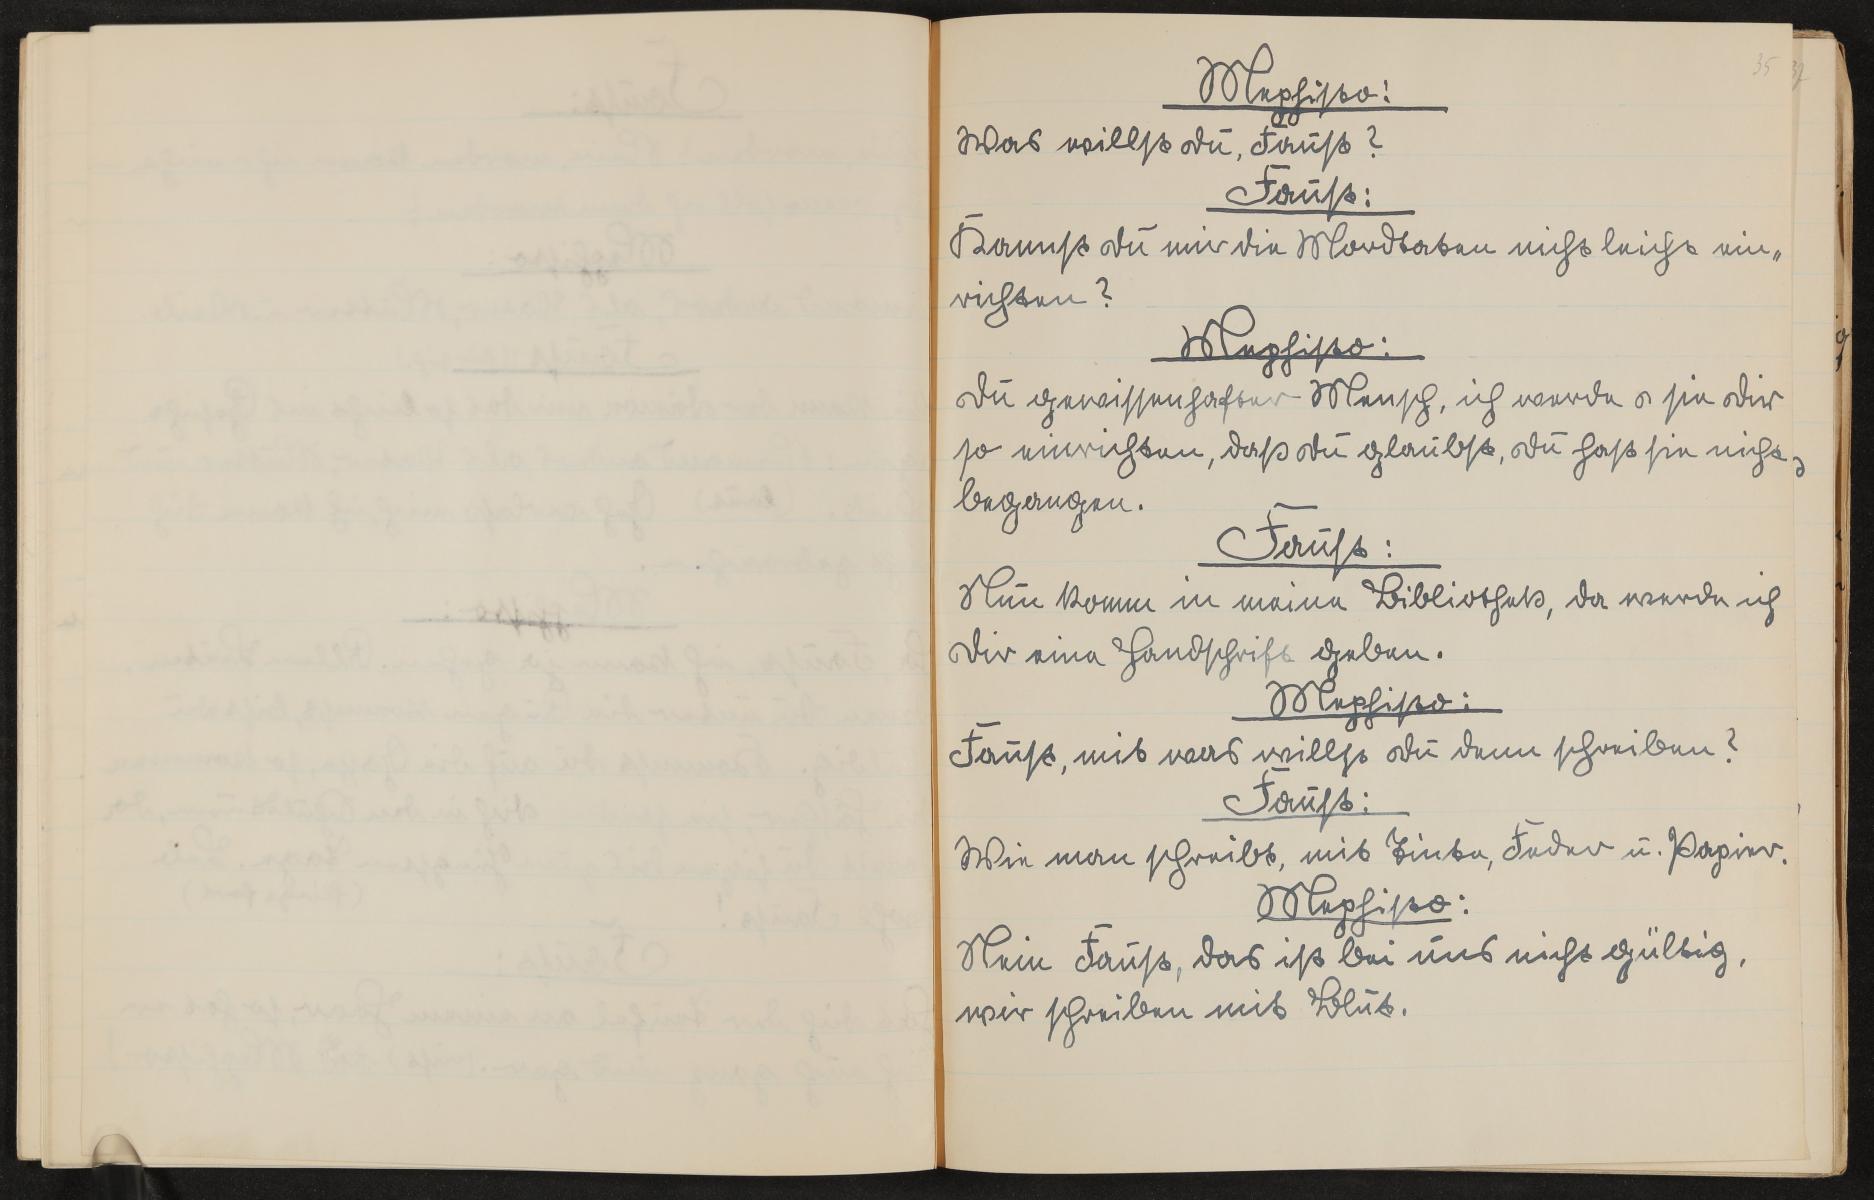 35
Mephisto:
Was willst du, Faust?
Faust:
Kannst du mir die Mordtaten nicht leicht ein„
richten?
Mephisto:
Du gewissenhafter Mensch, ich werde sie dir
so einrichten, daß du glaubst, du hast sie nicht
begangen.
Faust:
Nun komm in meine Bibliothek, da werde ich
dir eine Handschrift geben.
Mephisto:
Faust, mit was willst du denn schreiben?
Faust:
Wie man schreibt, mit Tinte, Feder u. Papier.
Mephisto:
Nein Faust, das ist bei uns nicht gültig,
wir schreiben mit Blut.